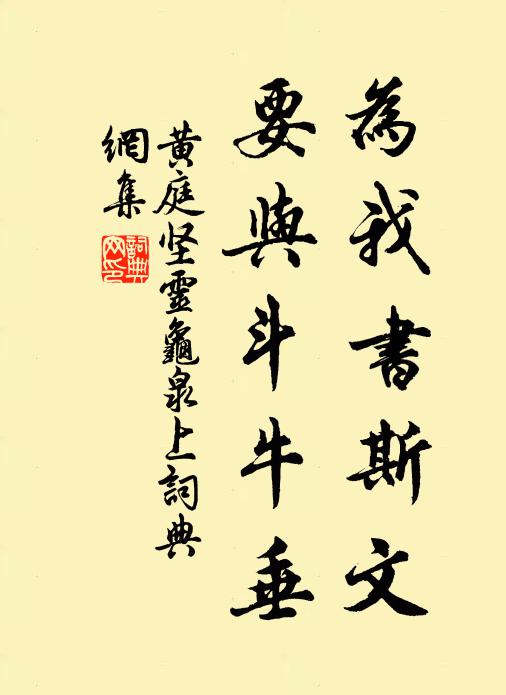 為我書斯文
要與斗牛垂
黄庭坚靈龜泉上詞典
網集
詞典網印